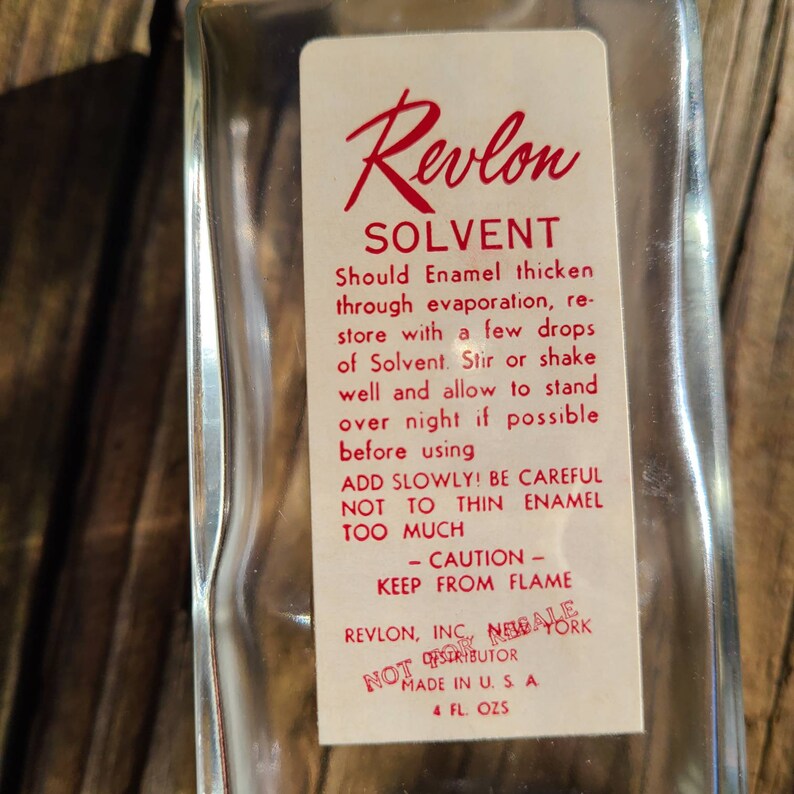 Revlon
SOLVENT
Should Enamel thicken
through evaporation, re-
store with a few drops
of Solvent. Stir or shake
well and allow to stand
over night if possible
before using
ADD SLOWLY! BE CAREFUL
NOT TO THIN ENAMEL
TOO MUCH
– CAUTION –
KEEP FROM FLAME
REVLON, INC. NEW YORK
NOT FOR RESALE
DISTRIBUTOR
MADE IN U. S. A.
4 FL. OZS